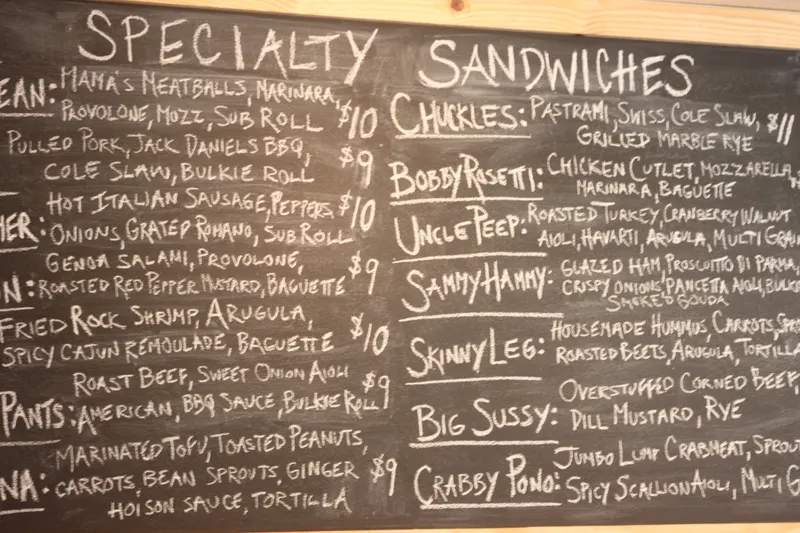 SPECIALTY SANDWICHES
EAN: MAMA'S MEATBALLS, MARINARA,
PROVOLONE, MOZZ, SUB ROLL $10
PULLED PORK, JACK DANIELS BBQ,
COLE SLAW, BULKIE ROLL $9
HOT ITALIAN SAUSAGE, PEPPERS, $10
HER: ONIONS, GRATED ROMANO, SUB ROLL
GENOA SALAMI, PROVOLONE, $9
N: ROASTED RED PEPPER MUSTARD, BAGUETTE
FRIED ROCK SHRIMP, ARUGULA,
SPICY CAJUN REMOULADE, BAGUETTE $10
ROAST BEEF, SWEET ONION AIOLI $9
PANTS: AMERICAN, BBQ SAUCE, BULKIE ROLL
MARINATED TOFU, TOASTED PEANUTS,
NA: CARROTS, BEAN SPROUTS, GINGER $9
HOISON SAUCE, TORTILLA
CHUCKLES: PASTRAMI, SWISS, COLE SLAW, $11
GRILLED MARBLE RYE
BOBBY ROSETTI: CHICKEN CUTLET, MOZZARELLA,
MARINARA, BAGUETTE
UNCLE PEEP: ROASTED TURKEY, CRANBERRY WALNUT
AIOLI, HAVARTI, ARUGULA, MULTI GRAI
SAMMY HAMMY: GLAZED HAM, PROSCUITTO DI PARMA,
CRISPY ONIONS, PANCETTA AIOLI, BULKI
SMOKED GOUDA
SKINNY LEG: HOUSEMADE HUMMUS, CARROTS, SPR
ROASTED BEETS, ARUGULA, TORTILLA
OVERSTUFFED CORNED BEEF,
BIG SUSSY: DILL MUSTARD, RYE
JUMBO LUMP CRABMEAT, SPROUT
CRABBY PONO: SPICY SCALLION AIOLI, MULTI G